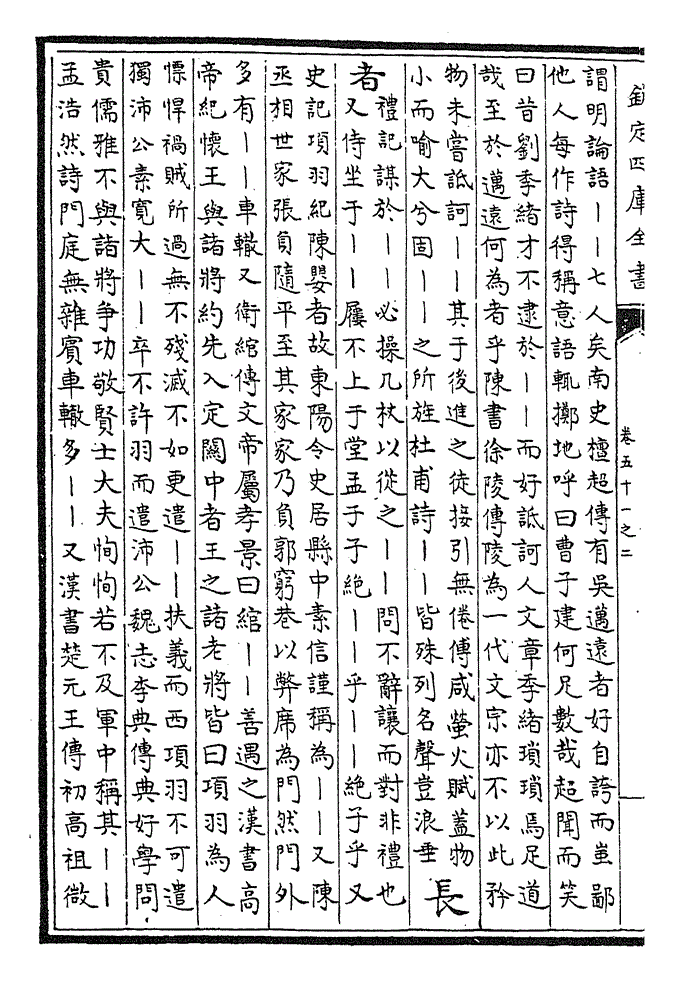 欽定四庫全書
卷五十一之二
謂明論語丨丨七人矣南史檀超傳有吳邁遠者好自誇而蚩鄙
他人每作詩得稱意語輒擲地呼曰曹子建何足數哉超聞而笑
曰昔劉季緒才不逮於丨丨而好詆訶人文章季緒瑣瑣焉足道
哉至於邁遠何為者乎陳書徐陵傳陵為一代文宗亦不以此矜
物未嘗詆訶丨丨其于後進之徒接引無倦傅咸螢火賦蓋物
小而喻大兮固丨丨之所旌杜甫詩丨丨皆殊列名聲豈浪垂
長
者
禮記謀於丨丨必操几杖以從之丨丨問不辭讓而對非禮也
又侍坐于丨丨屨不上于堂孟子子絶丨丨乎丨丨絶子乎又
史記項羽紀陳嬰者故東陽令史居縣中素信謹稱為丨丨又陳
丞相世家張負隨平至其家家乃負郭窮巷以弊席為門然門外
多有丨丨車轍又衛綰傳文帝屬孝景曰綰丨丨善遇之漢書高
帝紀懷王與諸將約先入定關中者王之諸老將皆曰項羽為人
慓悍禍賊所過無不殘滅不如更遣丨丨扶義而西項羽不可遣
獨沛公素寬大丨丨卒不許羽而遣沛公魏志李典傳典好學問
貴儒雅不與諸將争功敬賢士大夫恂恂若不及軍中稱其丨丨
孟浩然詩門庭無雜賓車轍多丨丨又漢書楚元王傳初高祖微